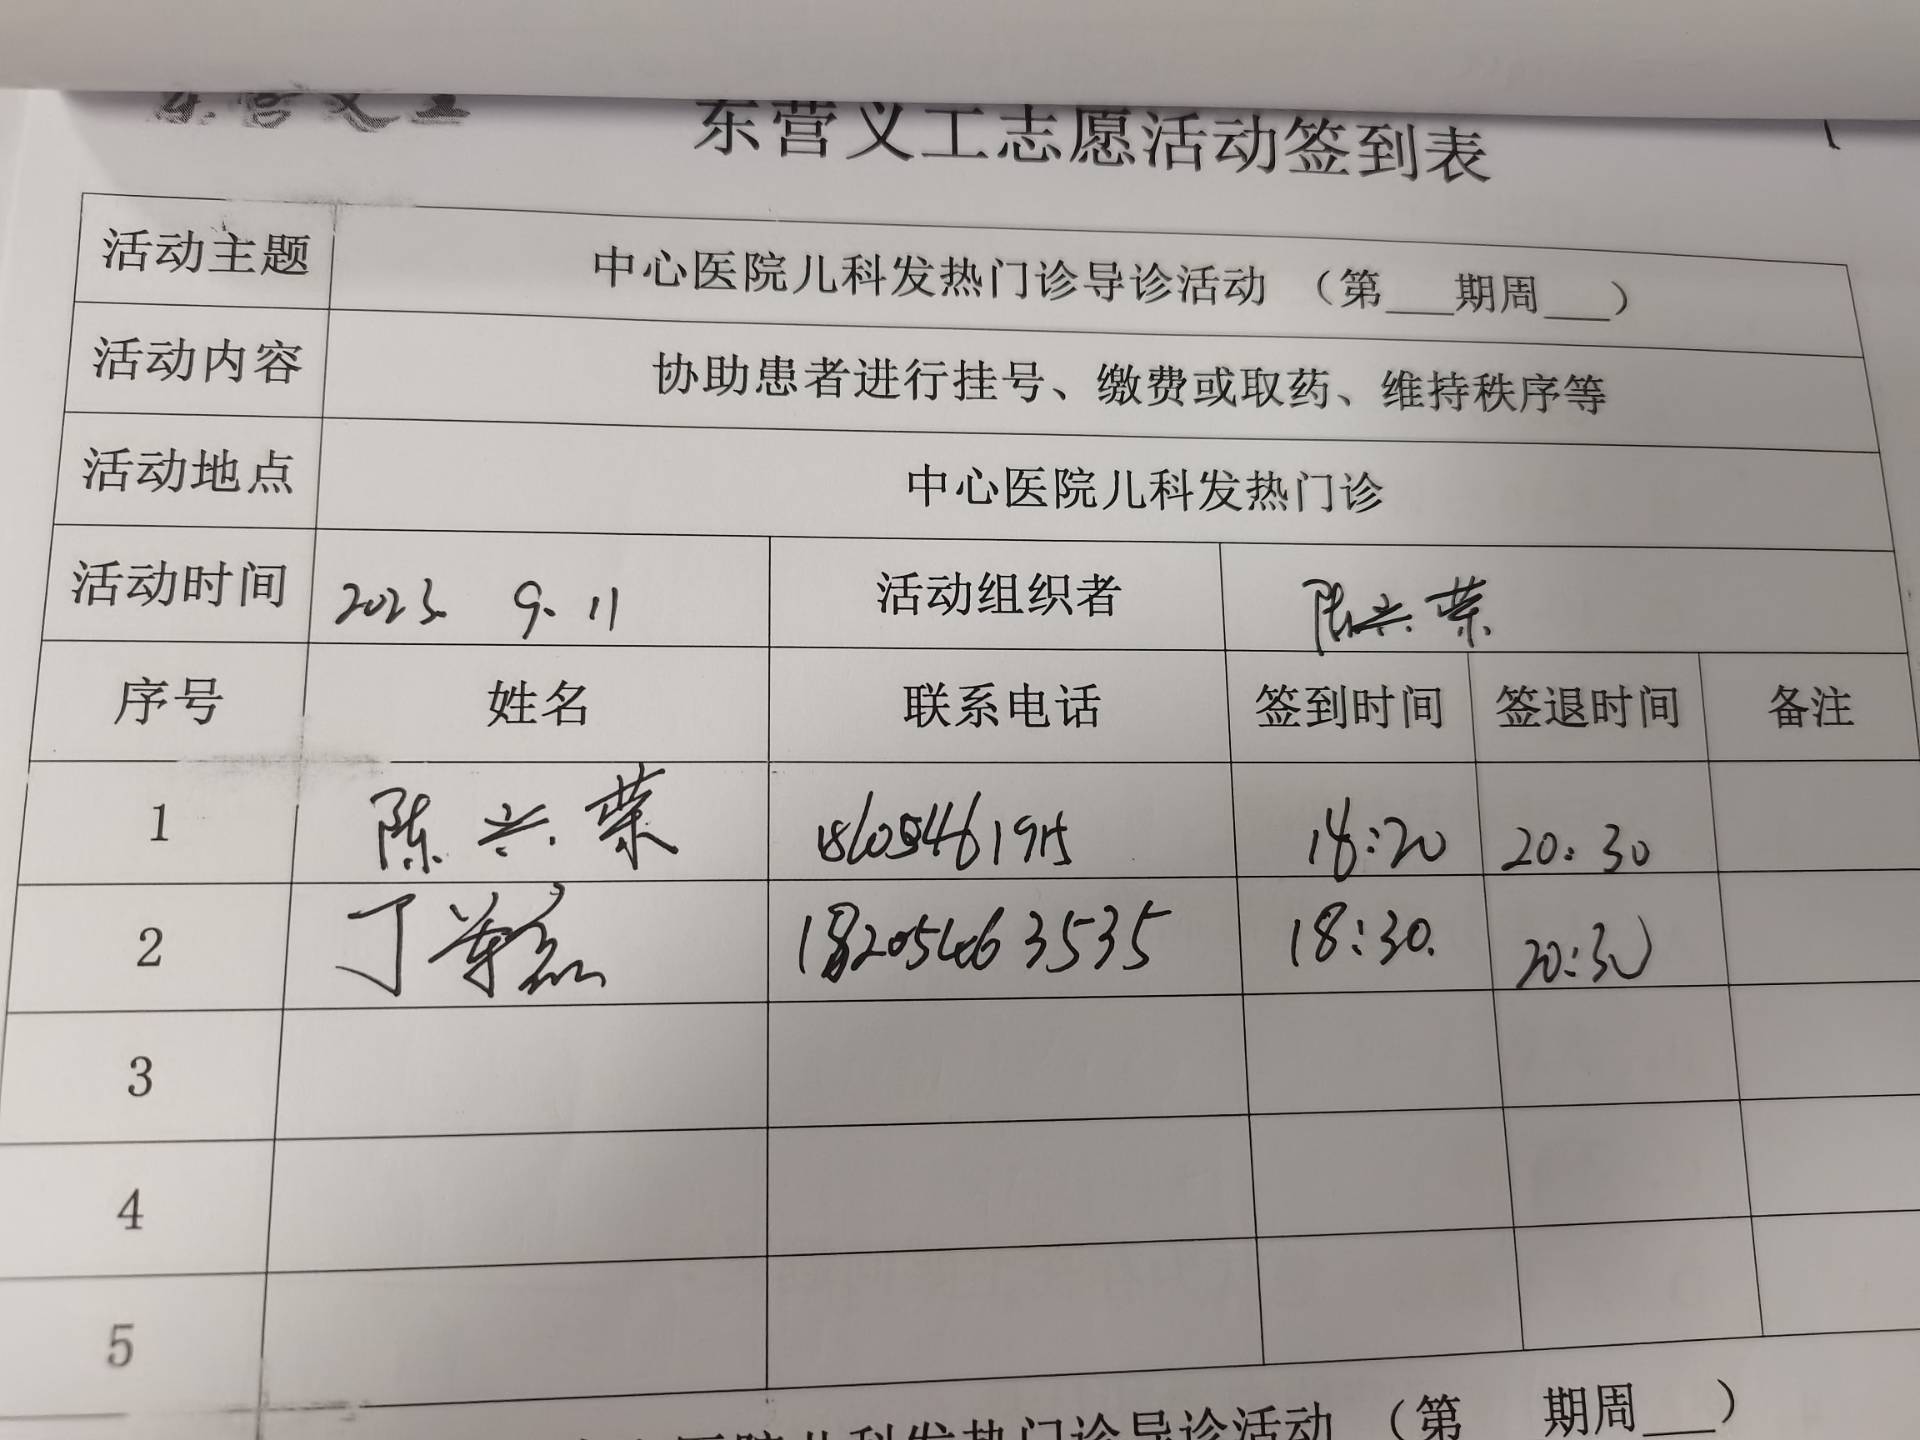 东营义工
东营义工志愿活动签到表
活动主题 中心医院儿科发热门诊导诊活动 （第___期周___）
活动内容 协助患者进行挂号、缴费或取药、维持秩序等
活动地点 中心医院儿科发热门诊
活动时间 2023. 9. 11 活动组织者 陈兴荣
序号 姓名 联系电话 签到时间 签退时间 备注
1 陈兴荣 18:20 20:30
2 丁 18205463535 18:30. 20:30
3
4
5
中心医院儿科发热门诊导诊活动 （第 期周___）